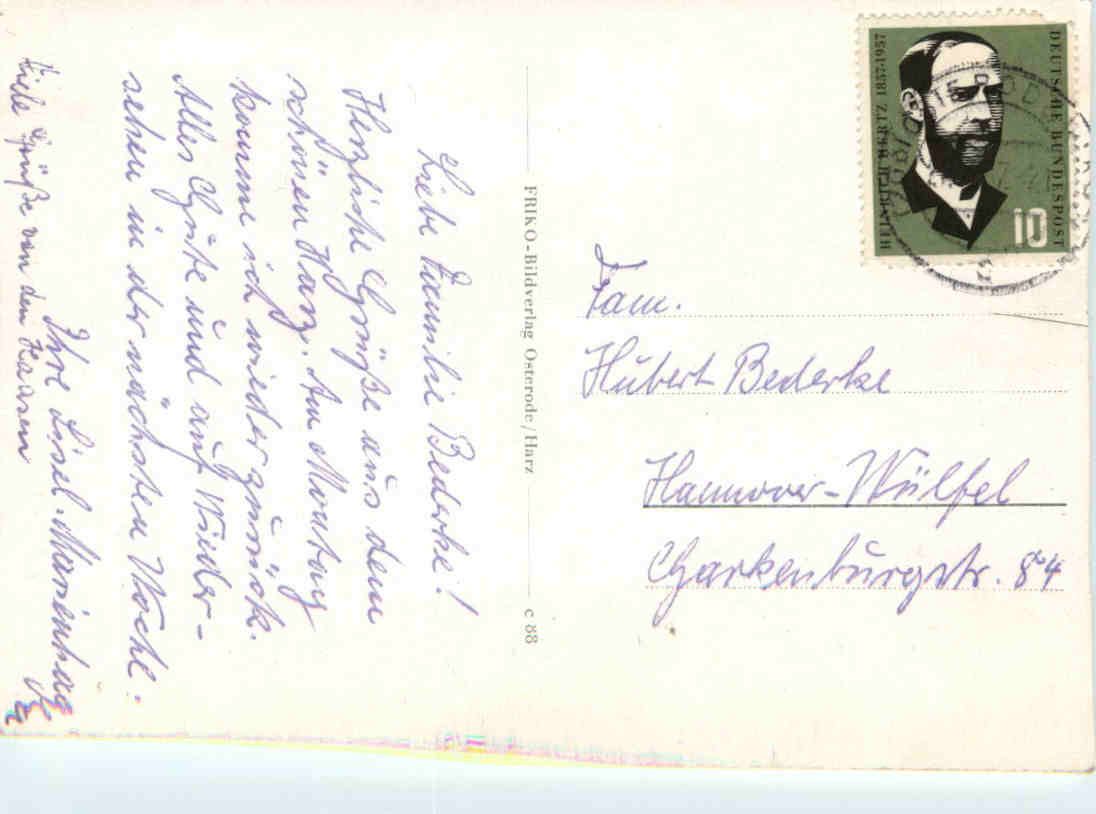 Liebe Familie Bederke!
Herzliche Grüße aus dem
schönen Harz. Am Montag
komme ich wieder zurück.
Alles Gute und auf Wieder-
sehen in der nächsten Woche.
Ihre Lisel Marienhag
Viele Grüße von den
FRIKO-Bildverlag Osterode/Harz
c 88
DEUTSCHE BUNDESPOST
HEINRICH HERTZ 1857·1957
10
Fam.
Hubert Bederke
Hannover-Wülfel
Garkenburgstr. 84